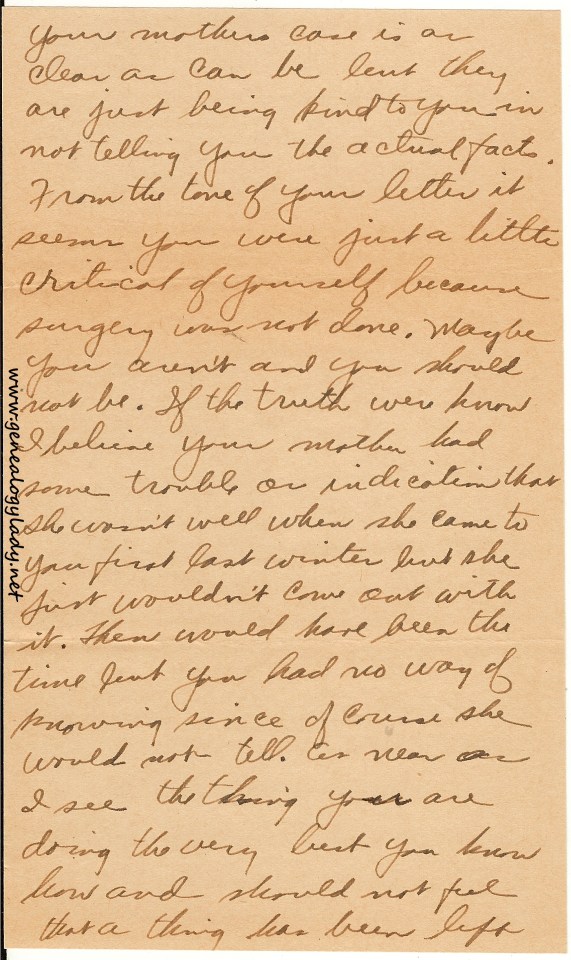 your mothers case is as
clear as can be but they
are just being kind to you in
not telling you the actual facts.
From the tone of your letter it
seems you were just a little
critical of yourself because
surgery was not done. Maybe
you aren't and you should
not be. If the truth were know
I believe your mother had
some trouble or indication that
she wasn't well when she came to
you first last winter but she
just wouldn't come out with
it. Then would have been the
time but you had no way of
knowing since of course she
would not tell. As near as
I see the thing you are
doing the very best you know
how and should not feel
that a thing has been left
www.genealogylady.net